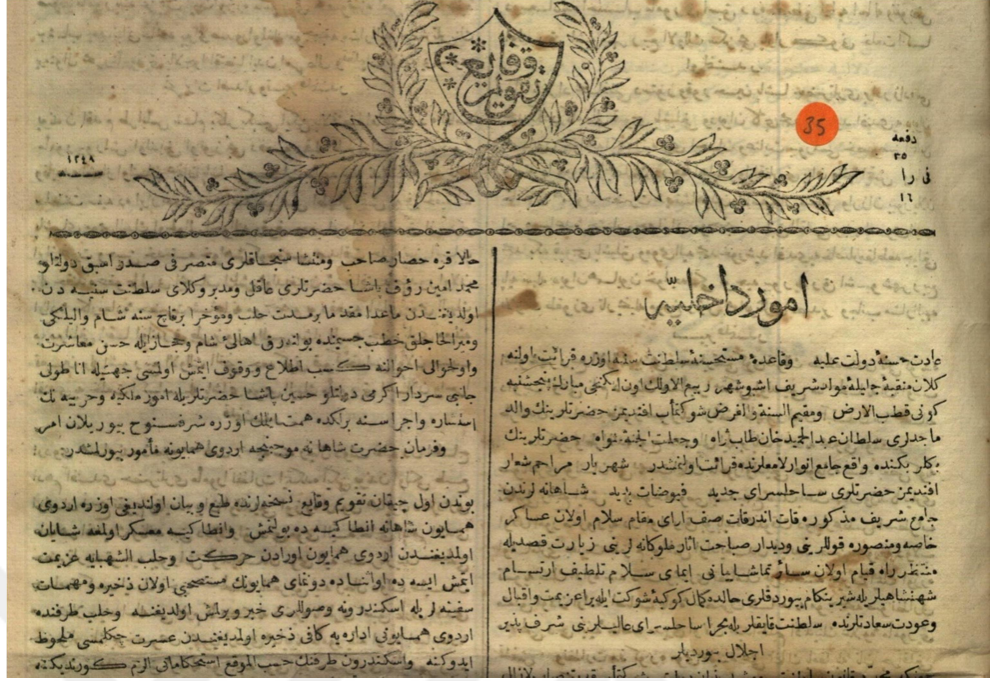 تقويم
وقايع
35
دفعه
٣٥
فی را
١٦
١٢٤٨
امور داخلیه
عادت حسنهٔ دولت علیه وقاعدهٔ مستحسنهٔ سلطنت سنیه اوزره قرائت اولنه
کلان منقبهٔ جلیلهٔ مولد شریف اشبو شهر ربیع الاولک اون ایکنجی مبارک پنجشنبه
کونی قطب الارض ومقیم السنة والفرض شوکتمآب افندیمز حضرتلرینك والد
ماجدلری سلطان عبد الحمید خان طاب ثراه وجعلت الجنة مثواه حضرتلرینك
بکلر بکنده واقع جامع انوار لامعلرنده قرائت اولنمشدر شهریار مراحم شعار
افندیمز حضرتلری ساحلسرای جدید فیوضات پدید شاهانه لرندن
جامع شریف مذکوره قات اندر قات صف ارای مقام سلام اولان عساکر
خاصه ومنصوره قوللرینی ودیدار صباحت اثار ملوکانه لرینی زیارت قصدیله
منتظر راه قیام اولان سائر تماشاییانی ایمای سلام تلطیف ارتسام
شهنشاهیلریله شیرینکام بیوردقلری حالده کمال کوکبهٔ شوکت ایله برا عزیمت واقبال
وعودت سعادتلرنده سلطنت قایقلریله بحرا ساحلسرای عالیلرینی شرف پذیر
اجلال بیوردیلر
حالا قره حصار صاحب ومنتشا سنجاقلری متصرفی صدر اسبق دولتلو
محمد امین رؤف پاشا حضرتلری عاقل ومدبر وکلای سلطنت سنیه دن
اولدیغندن ماعدا مقدما برمدت حلب ومؤخرا برقاچ سنه شام والیلکی
ومیر الحاجلق خطب جسیمنده بولنه رق اهالئ شام وحجاز ایله حسن معاشرت
واوحوالی احوالنه کسب اطلاع ووقوف ایتمش اولسی جهتیله اناطولی
جانبی سردار اکرمی دولتلو حسین پاشا حضرتلریله امور ملکیه وحربیه نك
استشاره واجراسنه برلکده همت ایلمك اوزره شرفسنوح بیوریلان امر
وفرمان حضرت شاهانه موجبنجه اردوی همایونه مأمور بیورلمشدر
بوندن اول چیقان تقویم وقایع نسخه لرنده طبع وبیان اولندیغی اوزره اردوی
همایون شاهانه انطاکیه ده بولنمش وانطاکیه معسکر اولمغه شایان
اولمدیغندن اردوی همایون اورادن حرکت وحلب الشهبایه عزیمت
ایتمش ایسه ده اواثناده دونمای همایونك مستصحبی اولان ذخیره ومهمات
سفینه لریله اسکندرونه وصوللری خبر ویرلمش اولدیغنه وحلب طرفنده
اردوی همایونی اداره یه کافی ذخیره اولمدیغندن عسرت چکلمسی ملحوظ
ایدوکنه واسکندرون طرفنك حسب الموقع استحکاماتی الزم کورندیکنه